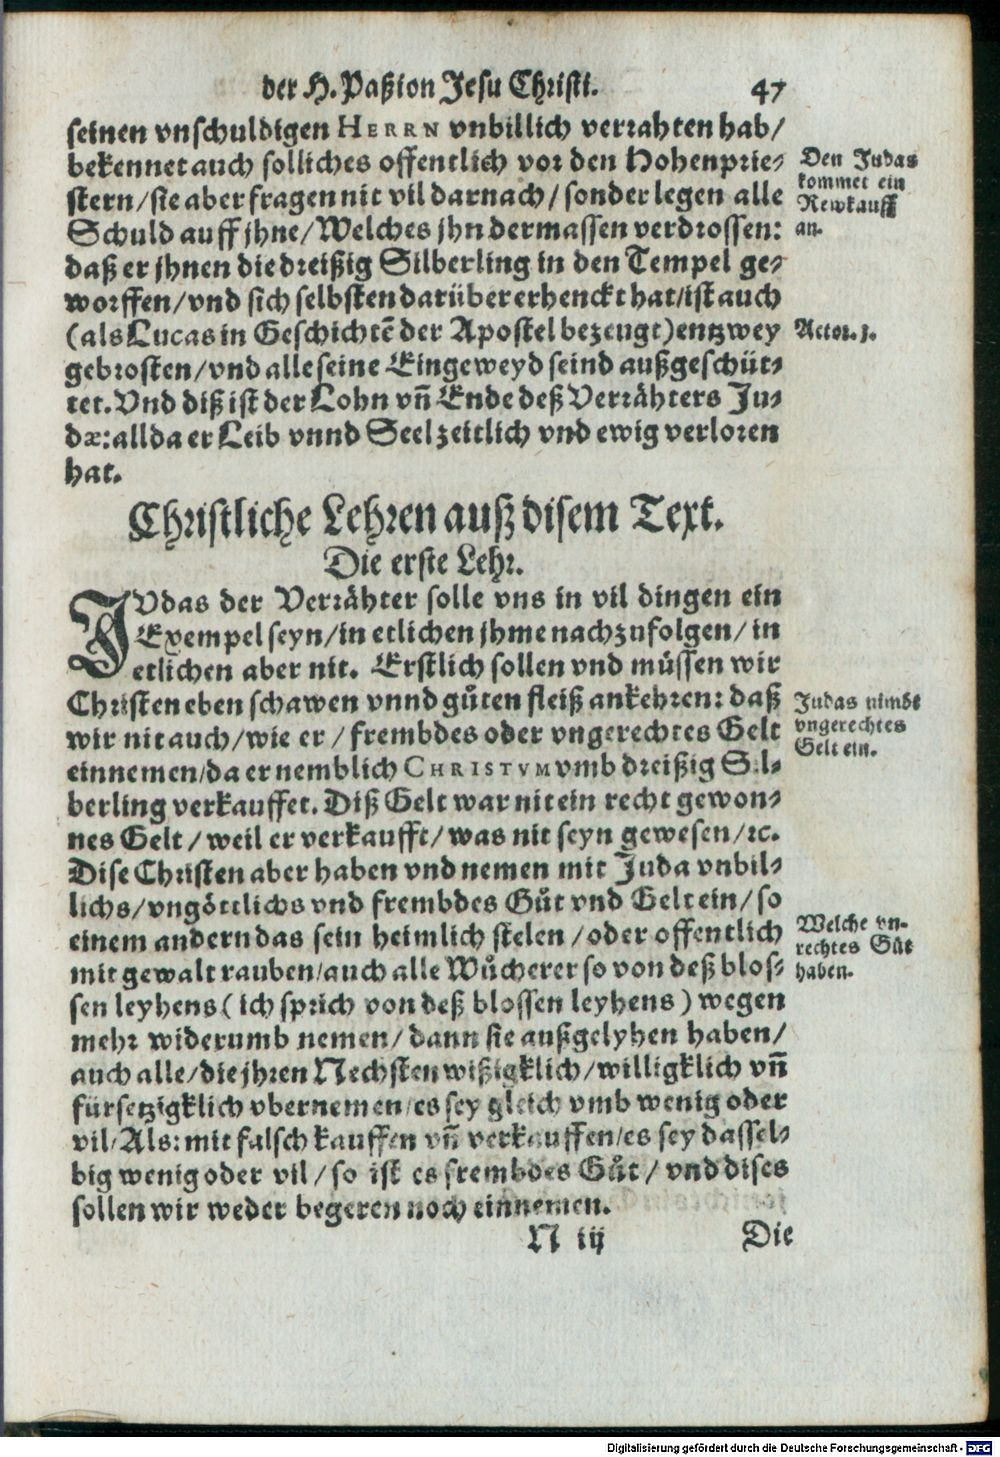 der H. Paßion Jesu Christi. 47
seinen vnschuldigen HERRN vnbillich verrahten hab/
bekennet auch solliches offentlich vor den Hohenprie-
stern/sie aber fragen nit vil darnach/sonder legen alle
Schuld auff jhne/Welches jhn dermassen verdrossen:
daß er jhnen die dreißig Silberling in den Tempel ge-
worffen/vnd sich selbsten darüber erhenckt hat/ist auch
(als Lucas in Geschichtē der Apostel bezeugt) entzwey
gebrosten/vnd alle seine Eingeweyd seind außgeschüt-
tet. Vnd diß ist der Lohn vñ Ende deß Verrähters Ju-
dæ: allda er Leib vnnd Seel zeitlich vnd ewig verloren
hat.
Den Judas
kommet ein
Rewkauff
an.
Actor. j.
Christliche Lehren auß disem Text.
Die erste Lehr.
JVdas der Verrähter solle vns in vil dingen ein
Exempel seyn/in etlichen jhme nachzufolgen/in
etlichen aber nit. Erstlich sollen vnd müssen wir
Christen eben schawen vnnd gůten fleiß ankehren: daß
wir nit auch/wie er/frembdes oder vngerechtes Gelt
einnemen/da er nemblich CHRISTVM vmb dreißig Sil-
berling verkauffet. Diß Gelt war nit ein recht gewon-
nes Gelt/weil er verkaufft/was nit seyn gewesen/ꝛc.
Dise Christen aber haben vnd nemen mit Juda vnbil-
lichs/vngöttlichs vnd frembdes Gůt vnd Gelt ein/so
einem andern das sein heimlich stelen/oder offentlich
mit gewalt rauben/auch alle Wůcherer so von deß blos-
sen leyhens (ich sprich von deß blossen leyhens) wegen
mehr widerumb nemen/dann sie außgelyhen haben/
auch alle/die jhren Nechsten wißigklich/willigklich vñ
fürsetzigklich vbernemen/es sey gleich vmb wenig oder
vil/Als: mit falsch kauffen vñ verkauffen/es sey dassel-
big wenig oder vil/so ist es frembdes Gůt/vnd dises
sollen wir weder begeren noch einnemen.
Judas nimbt
vngerechtes
Gelt ein.
Welche vn-
rechtes Gůt
haben.
N iij Die
Digitalisierung gefördert durch die Deutsche Forschungsgemeinschaft - DFG